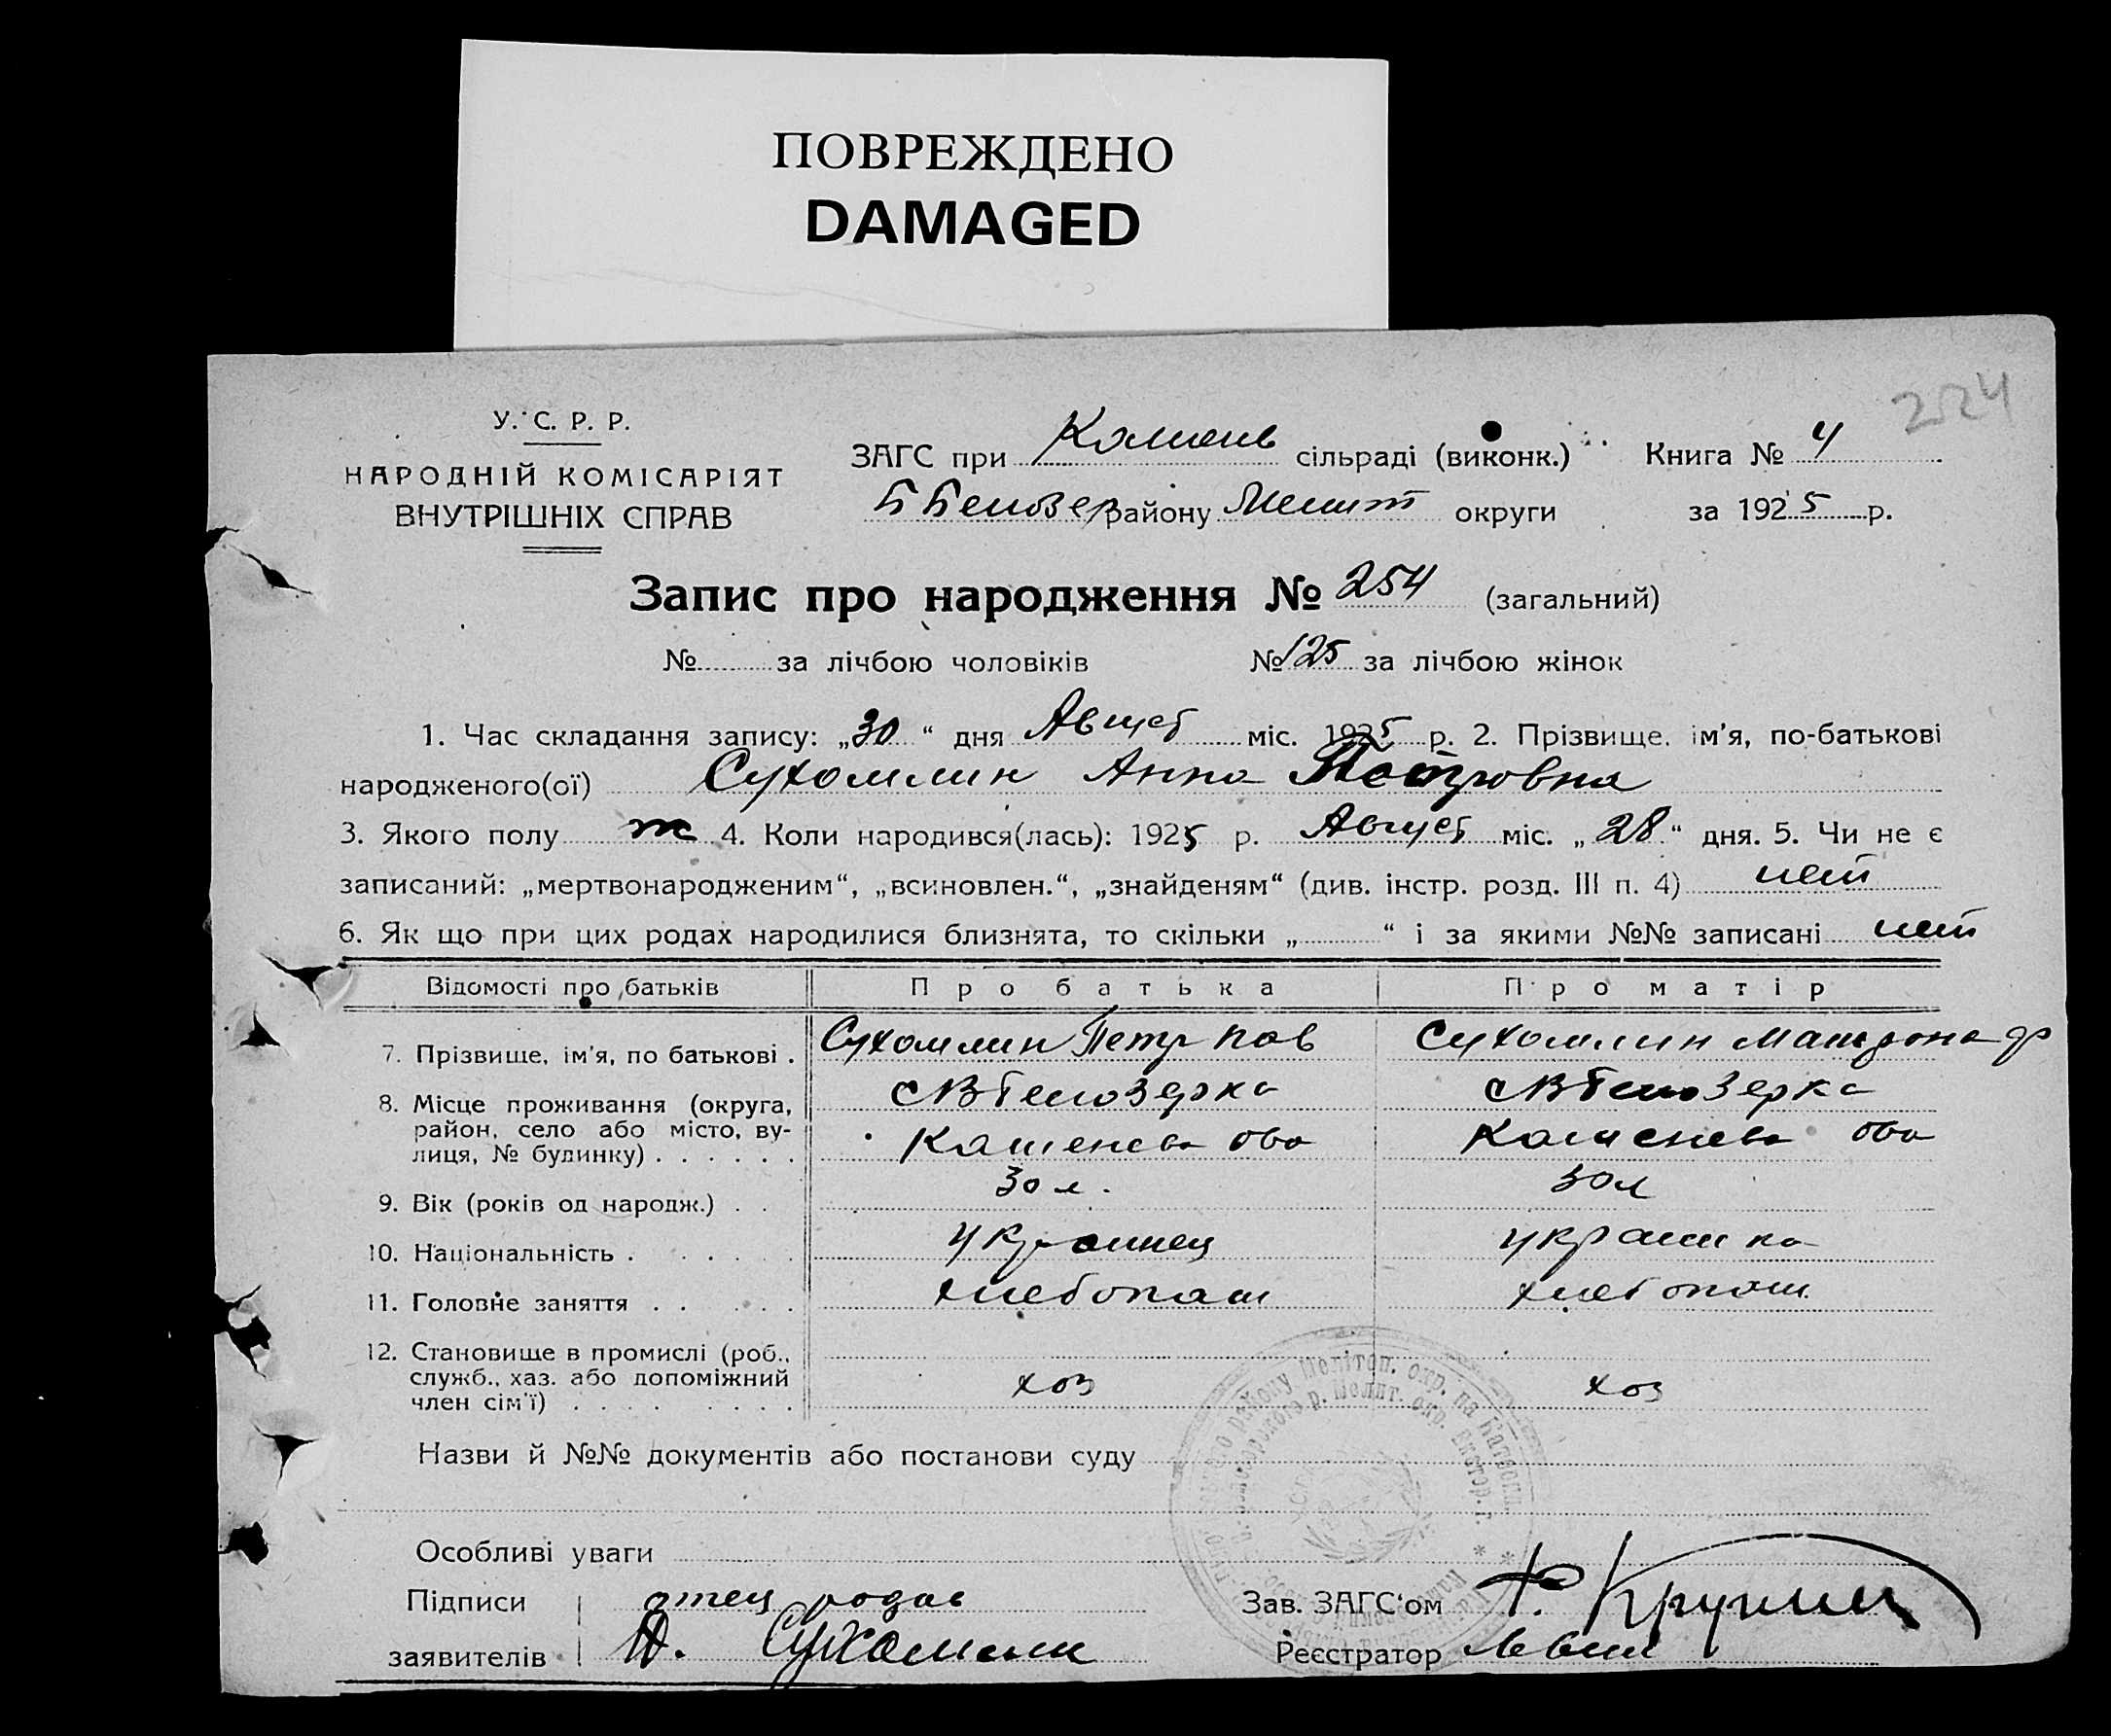 ПОВРЕЖДЕНО
DAMAGED
224
У. С. Р. Р.
НАРОДНІЙ КОМІСАРІЯТ
ВНУТРІШНІХ СПРАВ
ЗАГС при Камень сільраді (виконк.) Книга № 4
району Мелит округи за 1925 р.
Запис про народження № 254 (загальний)
№ за лічбою чоловіків № 125 за лічбою жінок
1. Час складання запису: „30“ дня Август міс. 1925 р. 2. Прізвище, ім'я, по-батькові
народженого(ої) Сухомлин Анна Петровна
3. Якого полу ж 4. Коли народився(лась): 1925 р. Август міс. „28“ дня. 5. Чи не є
записаний: „мертвонародженим“, „всиновлен.“, „знайденям“ (див. інстр. розд. III п. 4) нет
6. Як що при цих родах народилися близнята, то скільки „ “ і за якими №№ записані нет
Відомості про батьків Про батька Про матір
7. Прізвище, ім'я, по батькові . Сухомлин Петр Пав Сухомлин Матрона Ф
8. Місце проживання (округа, район, село або місто, вулиця, № будинку) . . . . . . с В Белозерка с В Белозерка
Каменева Каменева
9. Вік (років од народж.) . . 30 л. 30 л
10. Національність . . . . . . украинец украинка
11. Головне заняття . . . . . . хлебопаш хлебопаш
12. Становище в промислі (роб., служб., хаз. або допоміжний член сім'ї) . . . . . . . . хоз хоз
Назви й №№ документів або постанови суду
Особливі уваги
Підписи отец
заявителів Сухомлин
Зав. ЗАГС'ом
Реєстратор